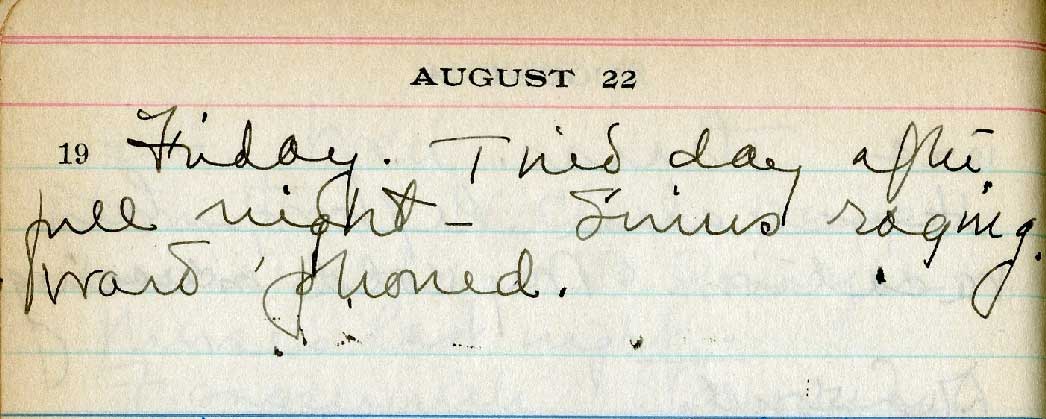 AUGUST 22
19 Friday. Tired day after
full night – Sirius raging.
Ward 'phoned.